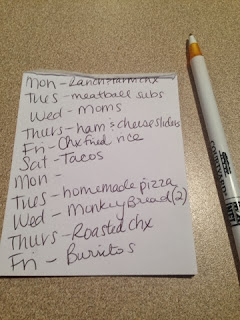 Mon - Ranch Parm chx
Tues - meatball subs
Wed - Moms
Thurs - ham & cheese sliders
Fri - Chx fried rice
Sat - Tacos
Mon -
Tues - homemade pizza
Wed - Monkey Bread (2)
Thurs - Roasted chx
Fri - Burritos